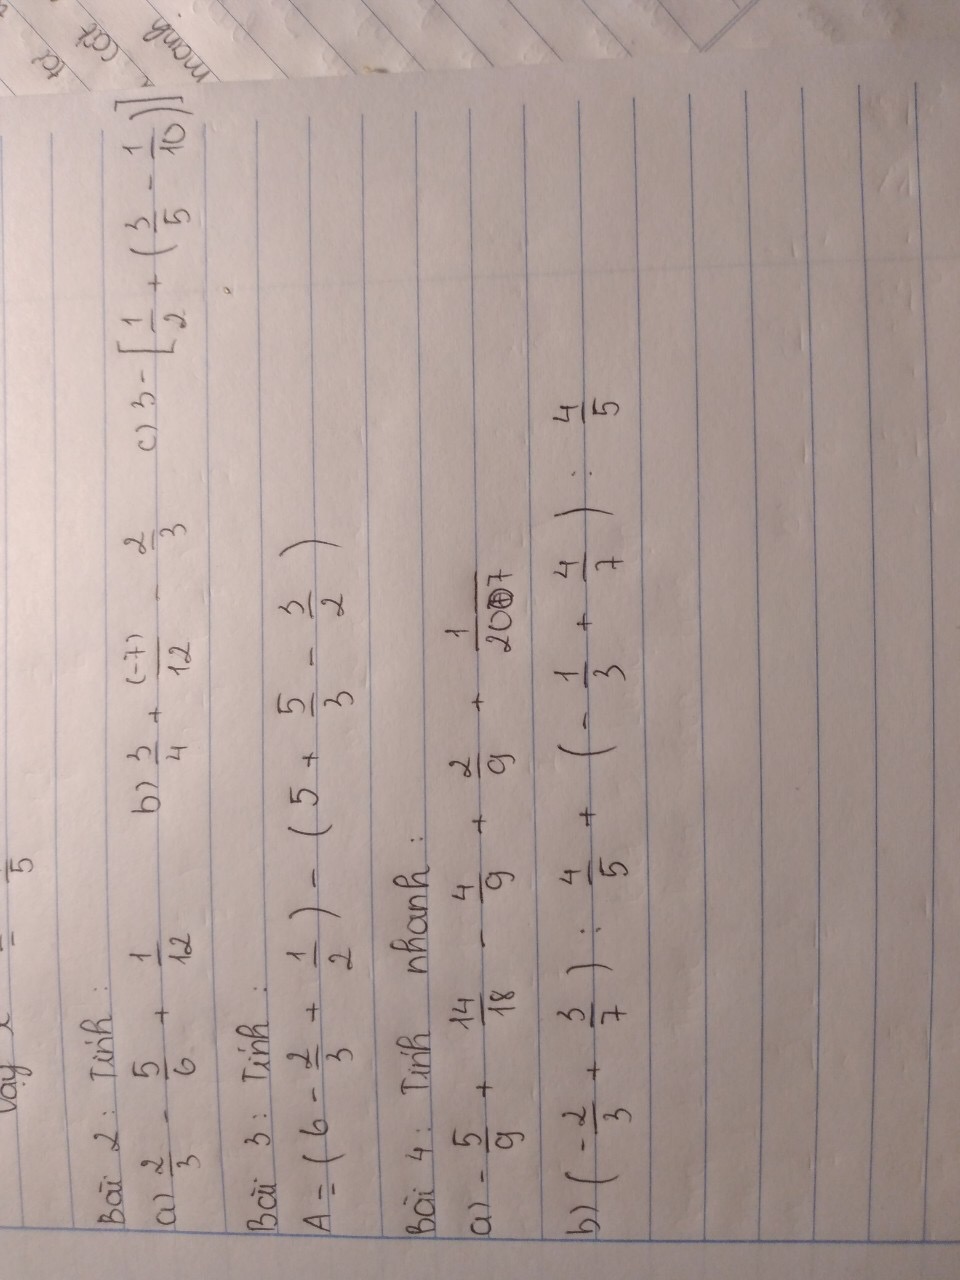 tá
cắt
mạnh.
Vậy
5
Bài 2: Tính:
a) 2/3 - 5/6 + 1/12 b) 3/4 + (-7)/12 - 2/3 c) 3 - [1/2 + (3/5 - 1/10)]
Bài 3: Tính:
A = (6 - 2/3 + 1/2) - (5 + 5/3 - 3/2)
Bài 4: Tính nhanh:
a) -5/9 + 14/18 - 4/9 + 2/9 + 1/2007
b) (-2/3 + 3/7) : 4/5 + (-1/3 + 4/7) : 4/5